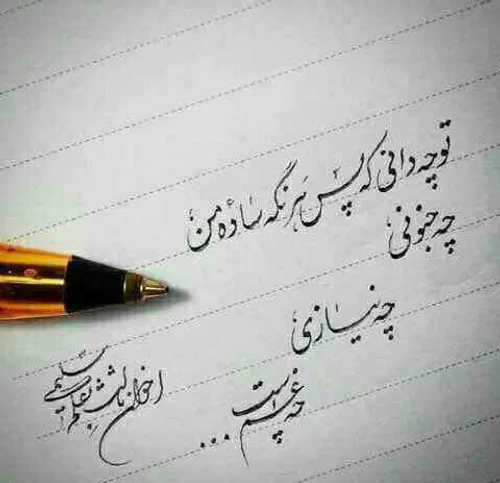 تو چه دانی که پس هر نگه ساده من
چه جنونی
چه نیازی
چه غمی است ...
اخوان ثالث